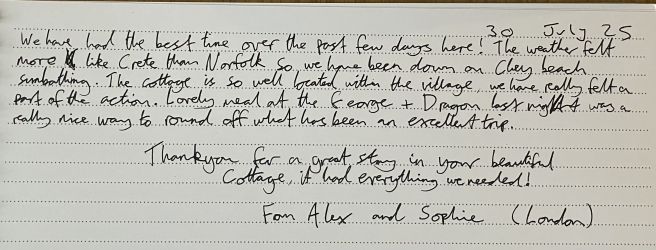 30 July 25
We have had the best time over the past few days here! The weather felt
more like Crete than Norfolk so we have been down on Cley beach
sunbathing. The cottage is so well located within the village, we have really felt a
part of the action. Lovely meal at the George + Dragon last night was a
really nice way to round off what has been an excellent trip.
Thankyou for a great stay in your beautiful
Cottage, it had everything we needed!
Fom Alex and Sophie (London)